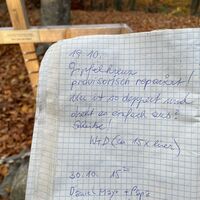 19.10.
Gipfelkreuz
provisorisch repariert!
Wer ist so deppert und
dreht es einfach aus?
W+D (ca. 15x hier)
30.10. 15
Mojo + Papa